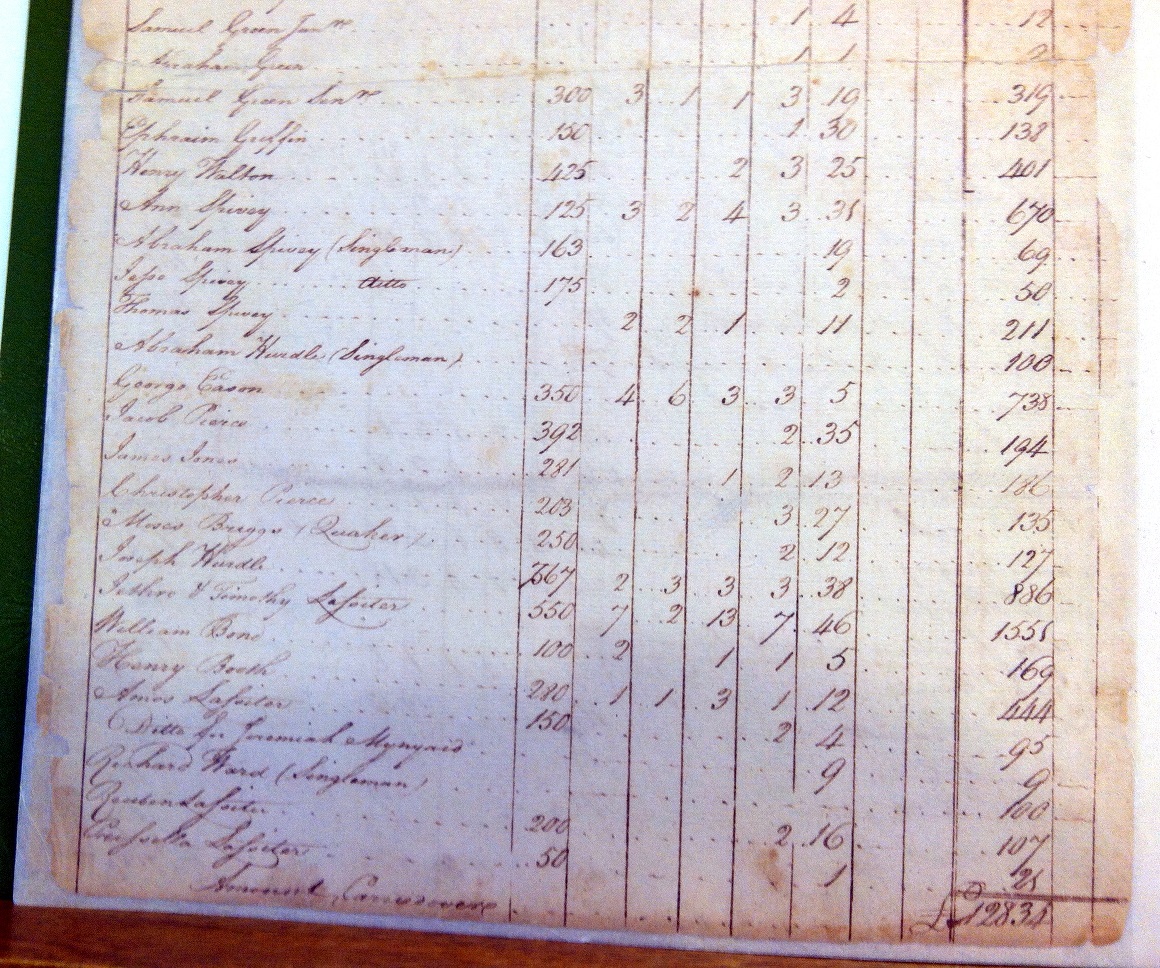 Samuel Green Junr 1 4 12
Abraham Green 1 1 2
Samuel Green Senr 300 3 1 1 3 19 319
Ephraim Griffin 150 1 30 138
Henry Walton 425 2 3 25 401
Ann Spivey 125 3 2 4 3 31 670
Abraham Spivey (Singleman) 163 19 69
Jesse Spivey ditto 175 2 50
Thomas Spivey 2 2 1 11 211
Abraham Hurdle (Singleman) 100
George Eason 350 4 6 3 3 5 738
Jacob Pierce 392 2 35 194
James Jones 281 1 2 13 186
Christopher Pierce 203 3 27 135
Moses Briggs (Quaker) 250 2 12 127
Joseph Hurdle 567 2 3 3 3 38 886
Jethro & Timothy Lassiter 550 7 2 13 7 46 1551
William Bond 100 2 1 1 5 169
Henry Booth 280 1 1 3 1 12 444
Amos Lassiter 150 2 4 95
Ditto for Jeremiah 9 9
Richard Ward (Singleman) 100
Reuben Lassiter 200 2 16 107
Lassiter 50 1 21
Amount Carried over £12834